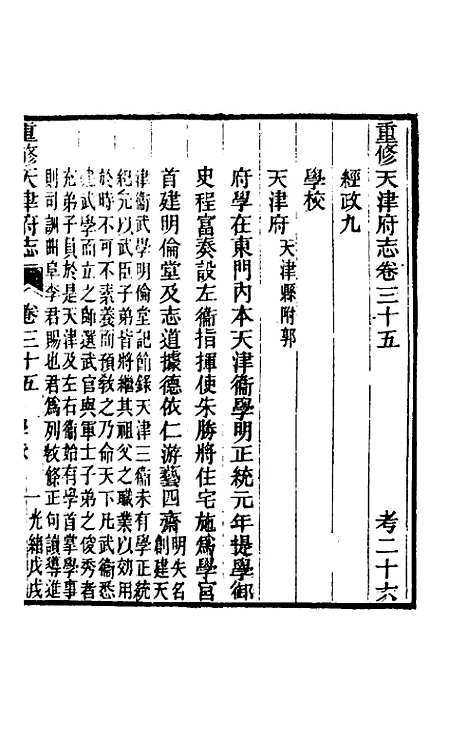 重修天津府志卷三十五　考二十六
經政九
學校
天津府 天津縣附郭
府學在東門內本天津衞學明正統元年提學御
史程富奏設左衞指揮使朱勝將住宅施爲學宮
首建明倫堂及志道據德依仁游藝四齋 明失名創建天
津衞武學明倫堂記節錄天津三衞未有學正統
紀元以武臣子弟皆將繼其祖父之職業以効用
於時不可不素養而預敎之乃命天下凡武衞悉
建武學而立之師選武官與軍士子弟之俊秀者
充弟子員於是天津及左右衞始有學首掌學事
則司訓曲阜李君賜也君爲列敎條正句讀導進
重修天津府志 卷三十五 一 光緒戊戌